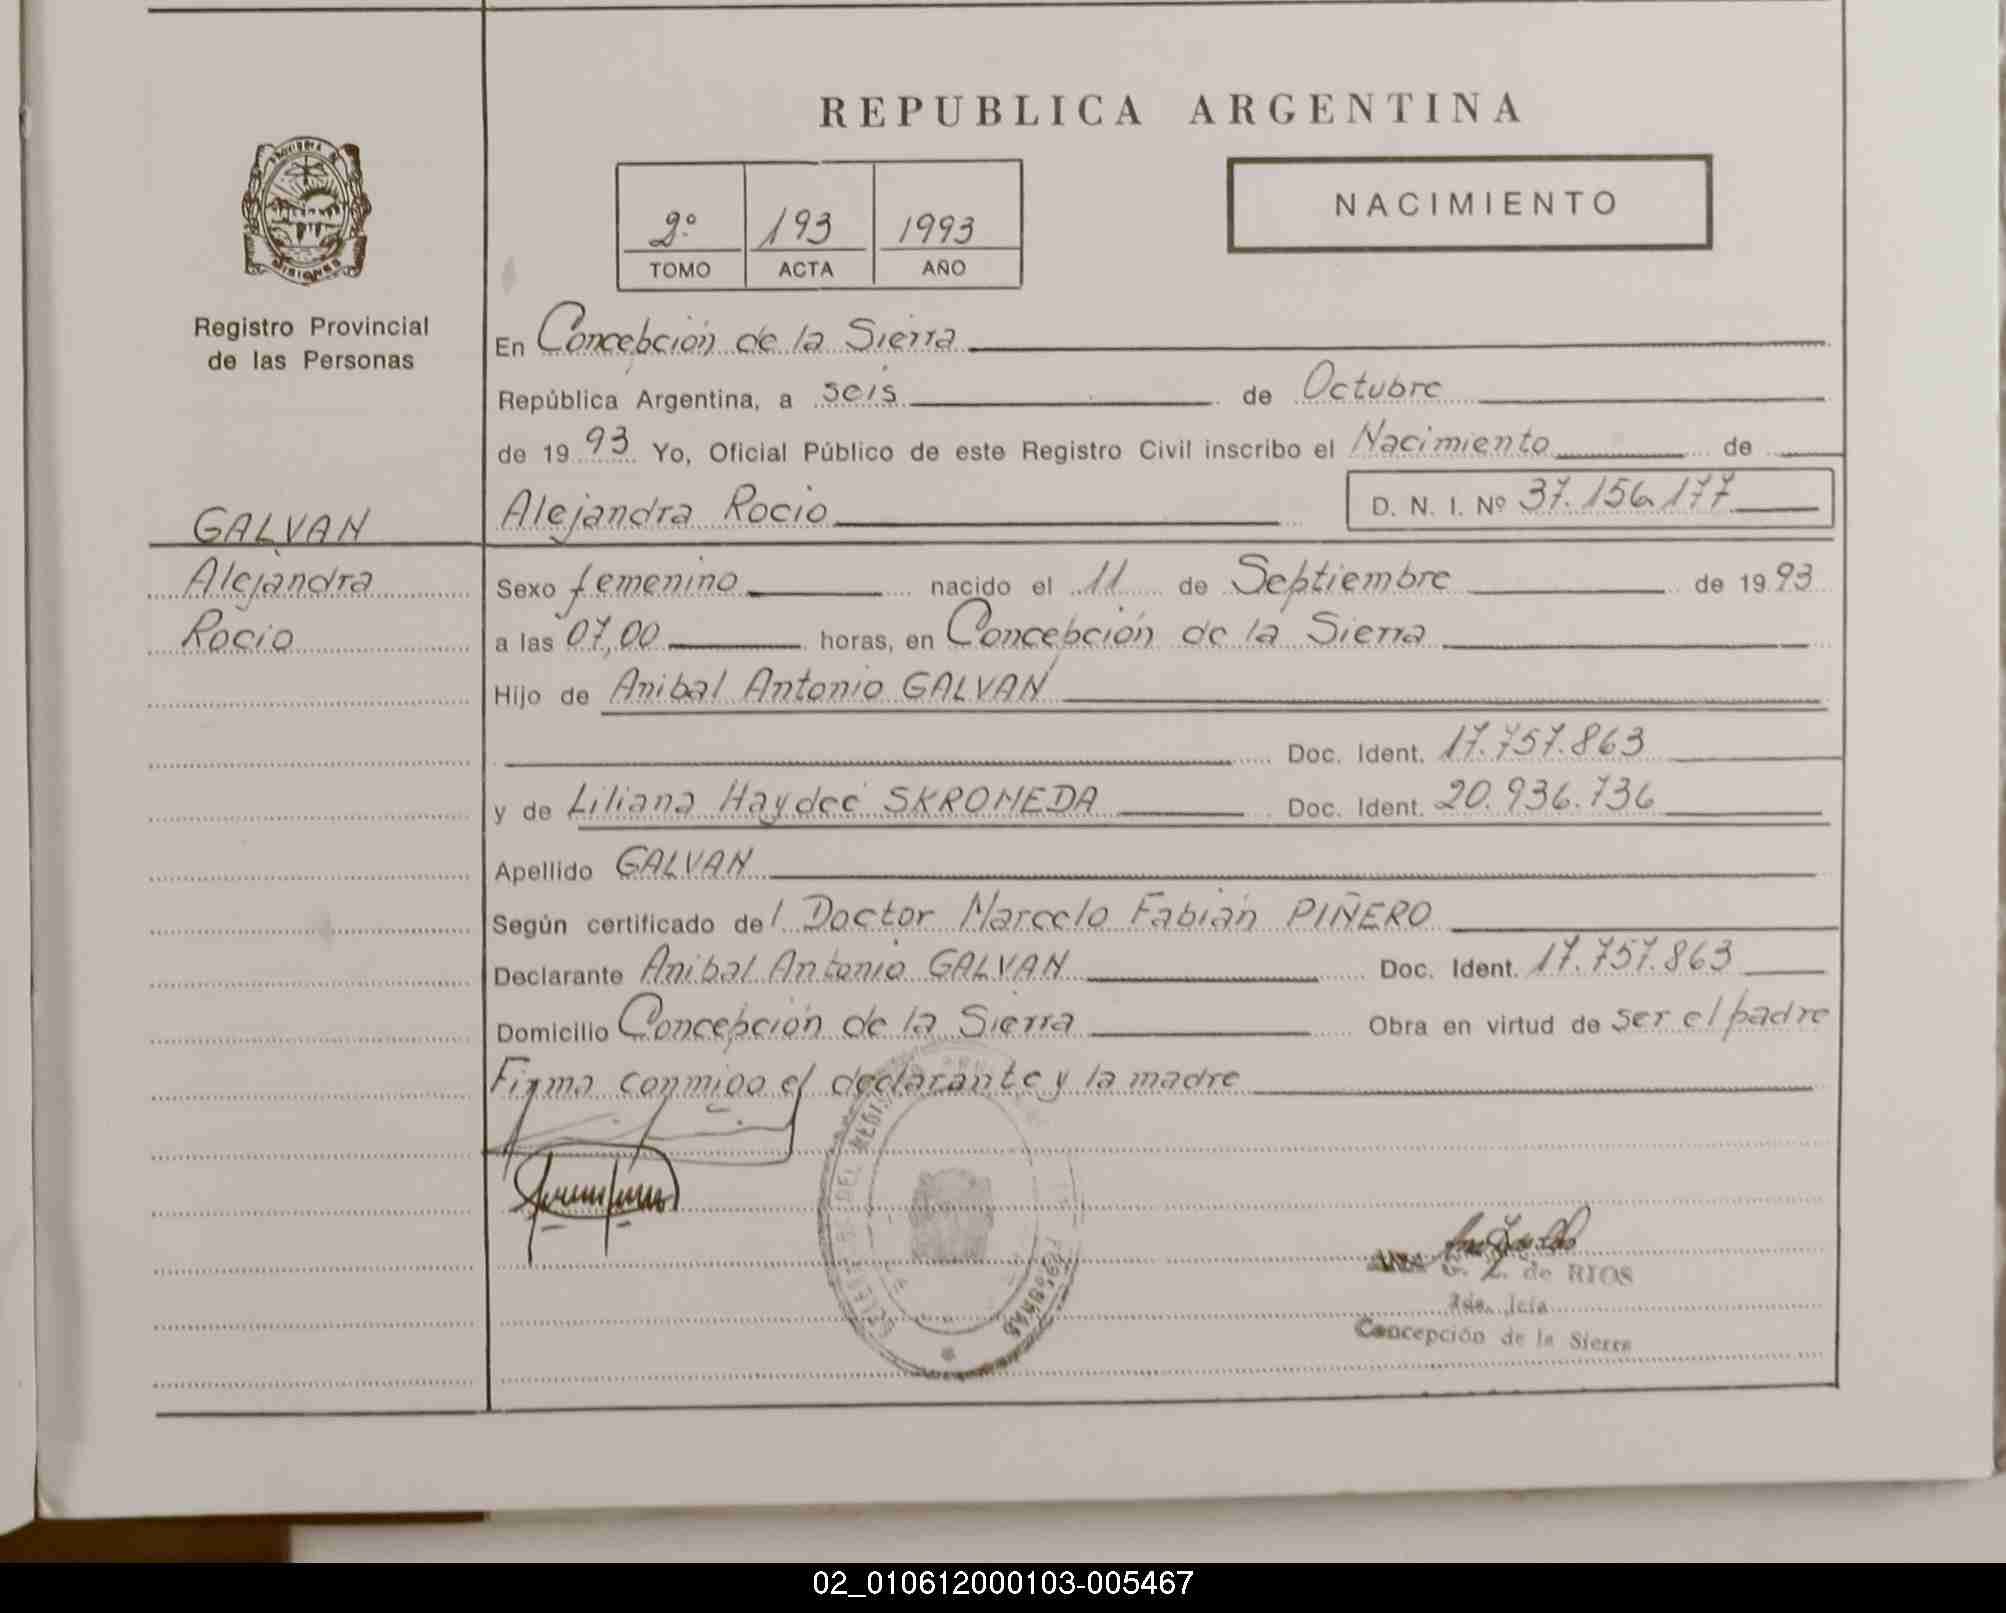 REPUBLICA ARGENTINA
NACIMIENTO
2º 193 1993
TOMO ACTA AÑO
PROVINCIA DE
MISIONES
Registro Provincial
de las Personas
GALVAN
Alejandra
Rocio
En Concepción de la Sierra
República Argentina, a seis de Octubre
de 1993 Yo, Oficial Público de este Registro Civil inscribo el Nacimiento de
Alejandra Rocio D. N. I. Nº 37.156.177
Sexo femenino nacido el 11 de Septiembre de 1993
a las 07,00 horas, en Concepción de la Sierra
Hijo de Anibal Antonio GALVAN
Doc. Ident. 17.757.863
y de Liliana Haydeé SKROMEDA Doc. Ident. 20.936.736
Apellido GALVAN
Según certificado del Doctor Marcelo Fabián PIÑERO
Declarante Anibal Antonio GALVAN Doc. Ident. 17.757.863
Domicilio Concepción de la Sierra Obra en virtud de ser el padre
Firma conmigo el declarante y la madre
DEL REGI PERSONAS
de RIOS
Concepción de la Sierra
02_010612000103-005467